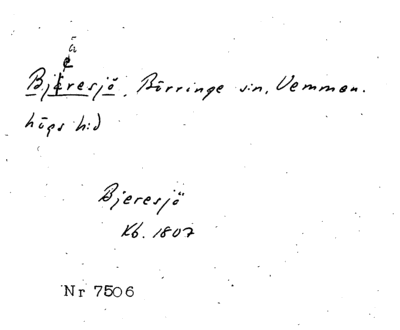 ä
e
Bjäresjö, Börringe sn, Vemmen-
högs hd
Bjeresjö
Kb. 1807
Nr 7506